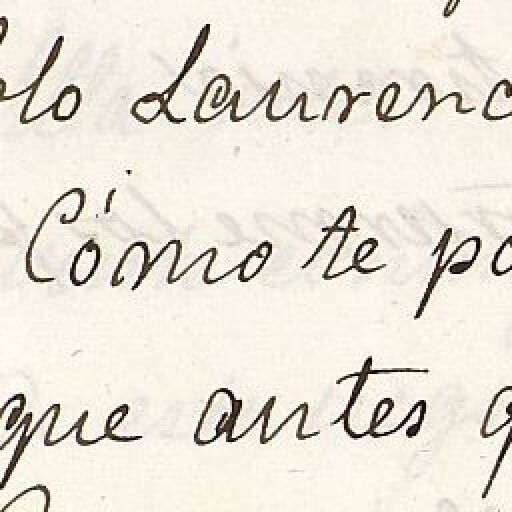 blo Laurenc
Cómo te pa
que antes q